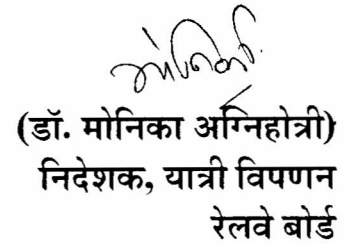 (डॉ. मोनिका अग्निहोत्री)
निदेशक, यात्री विपणन
रेलवे बोर्ड